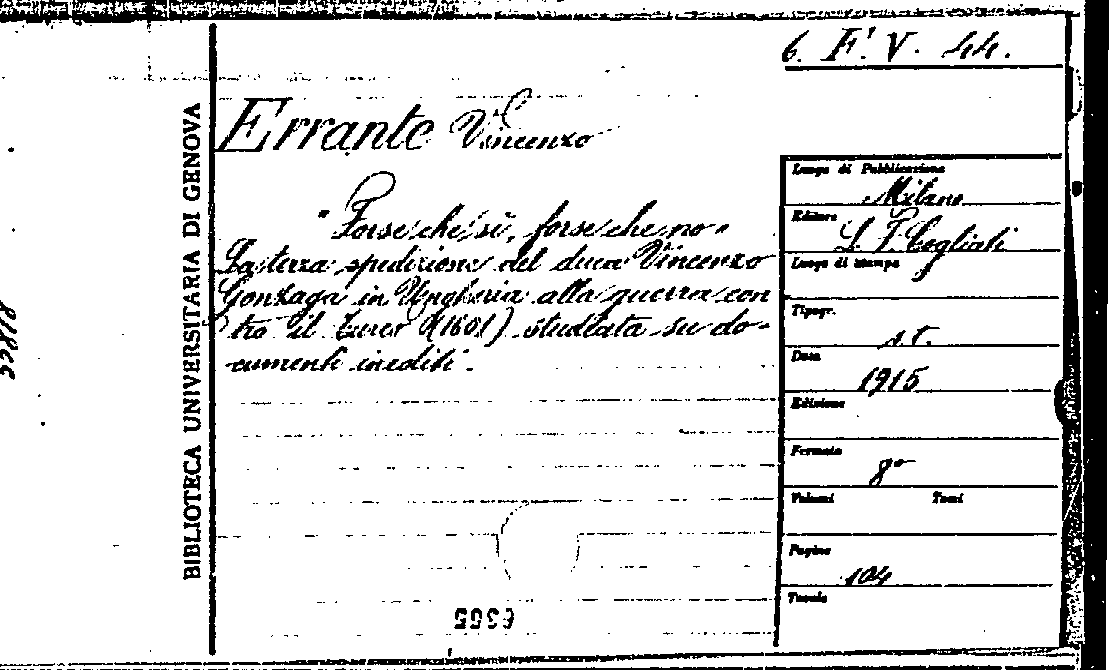 6. F. V. 44.
BIBLIOTECA UNIVERSITARIA DI GENOVA
Errante Vincenzo
"Forse che sì, forse che no"
La terza spedizione del duca Vincenzo
Gonzaga in Ungheria alla guerra con
tro il Turco (1601) studiata su do-
cumenti inediti.
Luogo di Pubblicazione
Milano
Editore
L. F. Cogliati
Luogo di stampa
Tipogr.
s.t.
Data
1915
Edizione
Formato
8°
Volumi Tomi
Pagine
104
Tavole